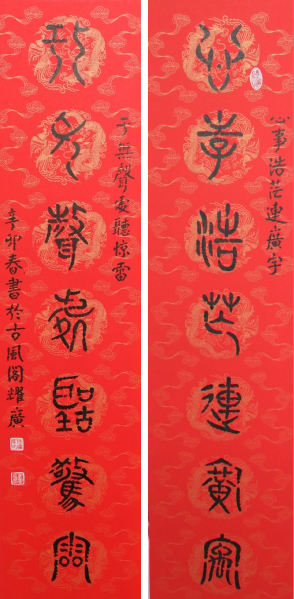 心事浩茫連廣宇
心事浩茫連廣宇
于無聲處聽驚雷
于無聲處聽惊雷
辛卯春書於古風閣耀廣